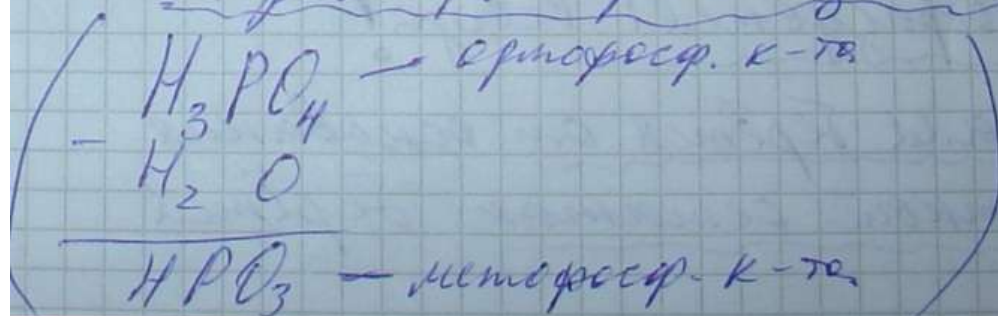 H₃PO₄ — ортофосф. к-та
- H₂O
HPO₃ — метафосф. к-та